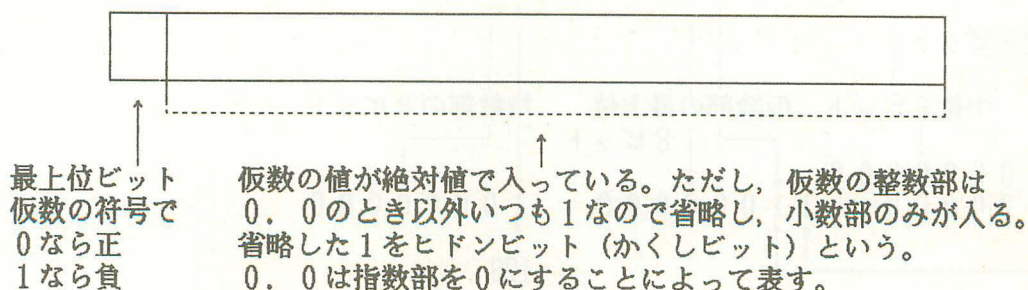 最上位ビット
仮数の符号で
0なら正
1なら負
仮数の値が絶対値で入っている。ただし，仮数の整数部は
0．0のとき以外いつも1なので省略し，小数部のみが入る。
省略した1をヒドンビット（かくしビット）という。
0．0は指数部を0にすることによって表す。